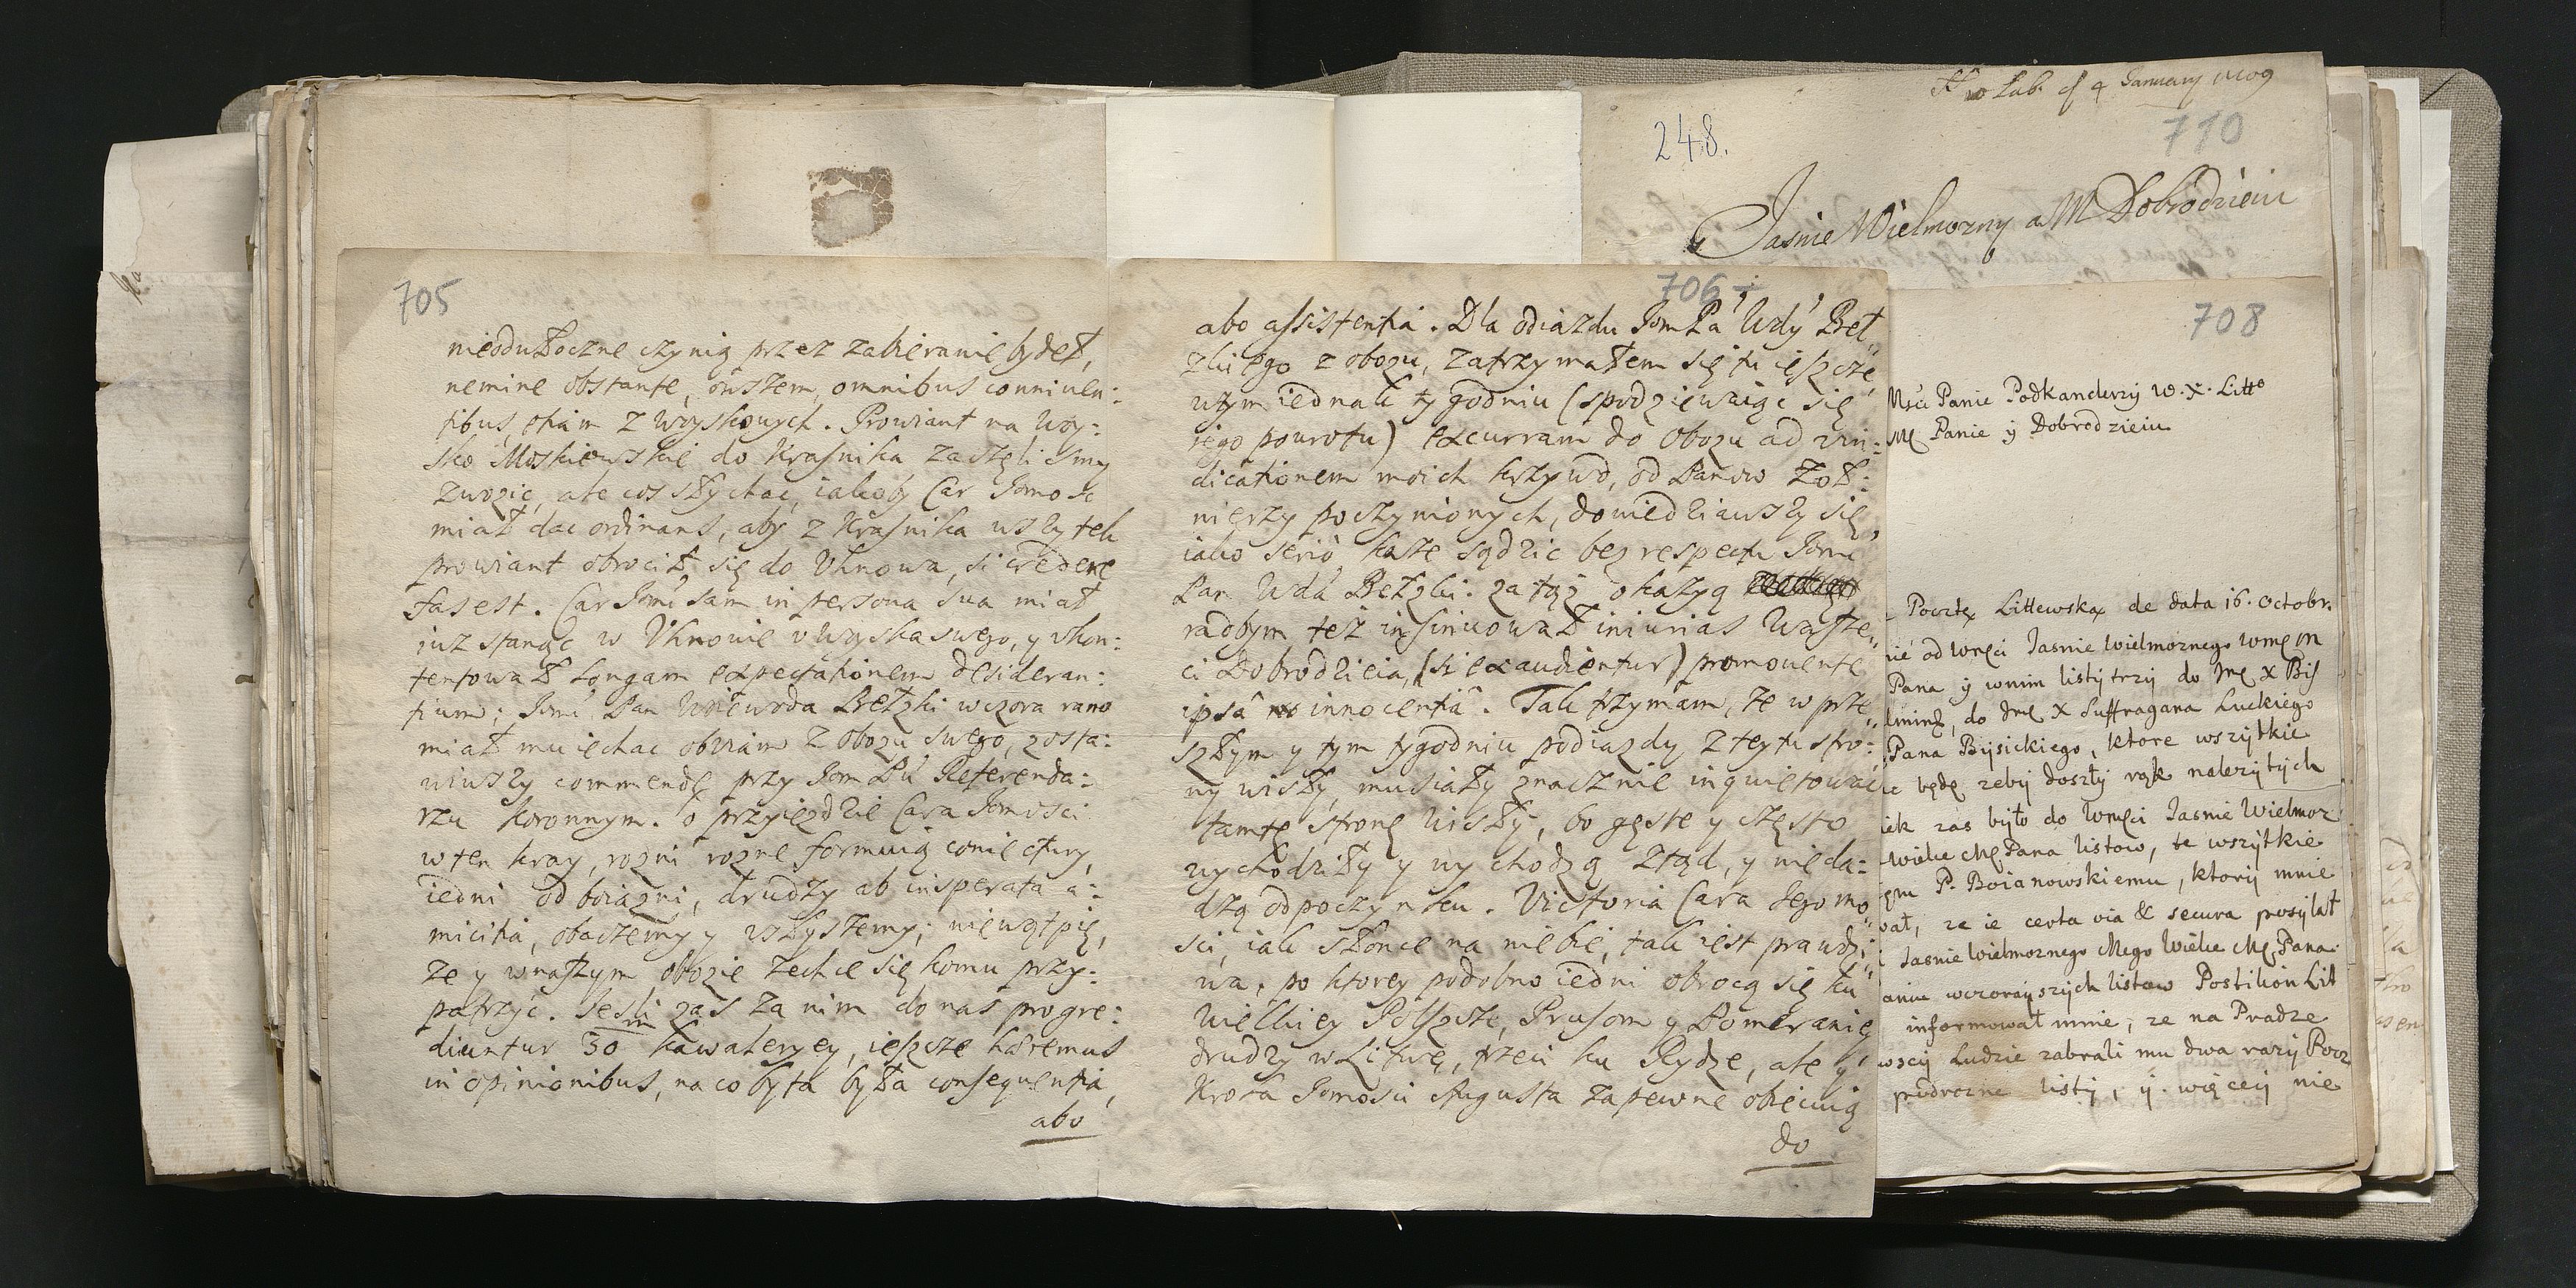 705
nieodwłoczne czynią przez zabieranie bydeł,
nemine obstante, owszem, omnibus conniven:
tibus, etiam z woyskowych. Prowiant na woy:
sko Moskiewskie do Kraśnika zaczęli smy
zwozić, ale cos słychać, iakoby Car Jomość
miał dac ordinans, aby z Kraśnika wszytek
prowiant obrocił się do Uhnowa, si credere
fas est. Car Jomć sam in persona sua miał
iuz stanąc w Uhnowie u woyska swego, y ukon:
tentował Longam expectationem desideran:
tium; Jomć Pan Woiewoda Bełzki wczora rano
miał mu iechac obviam z obozu swego, zosta:
wiwszy commendę przy Jom Pu Referenda:
rzu Koronnym. o przyiezdzie Cara Jomosci
w ten kray, rozni rozne formuią coniectury,
iedni od boiazni, drudzy ab insperata a:
micitia, obaczemy y usłyszemy; niewątpię,
ze y w naszym obozie zechce się komu przy:
patrzyć. Jesli zas za nim do nas progre:
diuntur 30 m kawaleryey, ieszcze hæremus
in opinionibus, na co by ta była consequentia,
abo
706 +
abo assistentia. Dla odiazdu Jom Pa Wdy Beł,,
zkiego z obozu, zatrzymałem się tu ieszcze
w tym iednak tygodniu (spodziewaiąc się
iego powrotu) excurram do obozu ad vin:
dicationem moich krzywd, od Panow Zoł:
nierzy poczynionych, dowiedziawszy się
iako serio kaze sądzic bez respectu Jomć
Pan Wda Bełzki. za tąz okazyą
radbym też insinuował iniurias Wasze,,
ci Dobrodzieia, (si exaudientur) promovente
ipsâ innocentiâ. Tak trzymam, że w prze,,
szłym y tym tygodniu podiazdy z tey tu stro:
ny wisły, musiały znacznie inquietować
tamtę stronę wisły, bo gęste y często
wychodziły y wychodzą ztąd, y nieda:
dzą odpoczynku. Victoria Cara Jegomo,,
sci, iak słonce na niebie, tak iest prawdzi,,
wa, po ktorey podobno iedni obrocą się ku
Wielkiey Polszcze, Prusom y Pomeranię
drudzy w Litwę, trzeci ku Rydze, ale y
Krola Jomosci Augusta zapewne obiecuią
do
248.
January 1709
710
Jasnie Wielmozny a M Dobrodzieiu
708
Msci Panie Podkanclerzy W. X. Litto
Mę Panie y Dobrodzieiu
Pocztę Littewską de data 16. octobr.
nie od wmci Jasnie wielmoznego wmę M
Pana y wnim listy trzy do Jmę X Bis
do Jmę X Suffragana Luckiego
Pana Bysickiego, ktore wszytkie
będę zeby doszły rąk nalezytych
iek zas było do wmci Jasnie Wielmoz
wielce Mę Pana listow, te wszytkie
P. Boianowskiemu, ktory mnie
wał, ze ie certa via & secura posyłał
Jasnie wielmoznego Mego wielce Mę Pana
aniu wczorayszych listow Postilion Lit
informował mnie, ze na Pradze
wscy Ludzie zabrali mu dwa razy Pocz
podrozne listy, y więcey nie